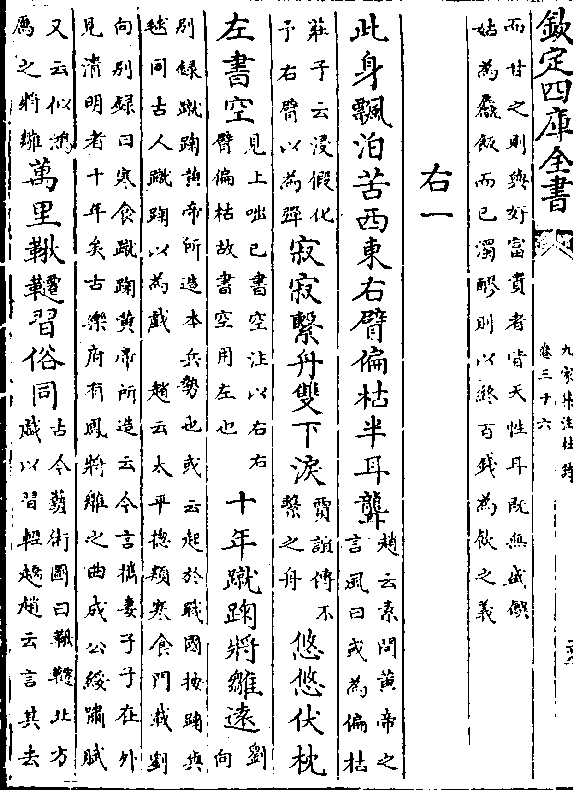 欽定四庫全書
九家集注杜詩
卷三十六
而甘之則與好富貴者皆天性耳既無盛饌
姑為麤飯而已濁醪則以終百錢為飲之義
右一
此身飄泊苦西東右臂偏枯半耳聾趙云素問黄帝之言風曰或為偏枯
莊子云浸假化予右臂以為彈寂寂繫舟雙下淚賈誼傳不繫之舟悠悠伏枕
左書空見上咄已書空注以右右臂偏枯故書空用左也十年蹴踘將雛遠劉向
别録蹴踘黄帝所造本兵勢也或云起於戰國按踘與
毬同古人蹴踘以為戲 趙云太平總類寒食門載劉
向别録曰寒食蹴踘黄帝所造云今言攜妻子子在外
見清明者十年矣古樂府有鳳將雛之曲成公綏嘯賦
又云似鴻鴈之將雛萬里鞦韆習俗同古今藝術圖曰鞦韆北方戲以習輕趫趙云言其去